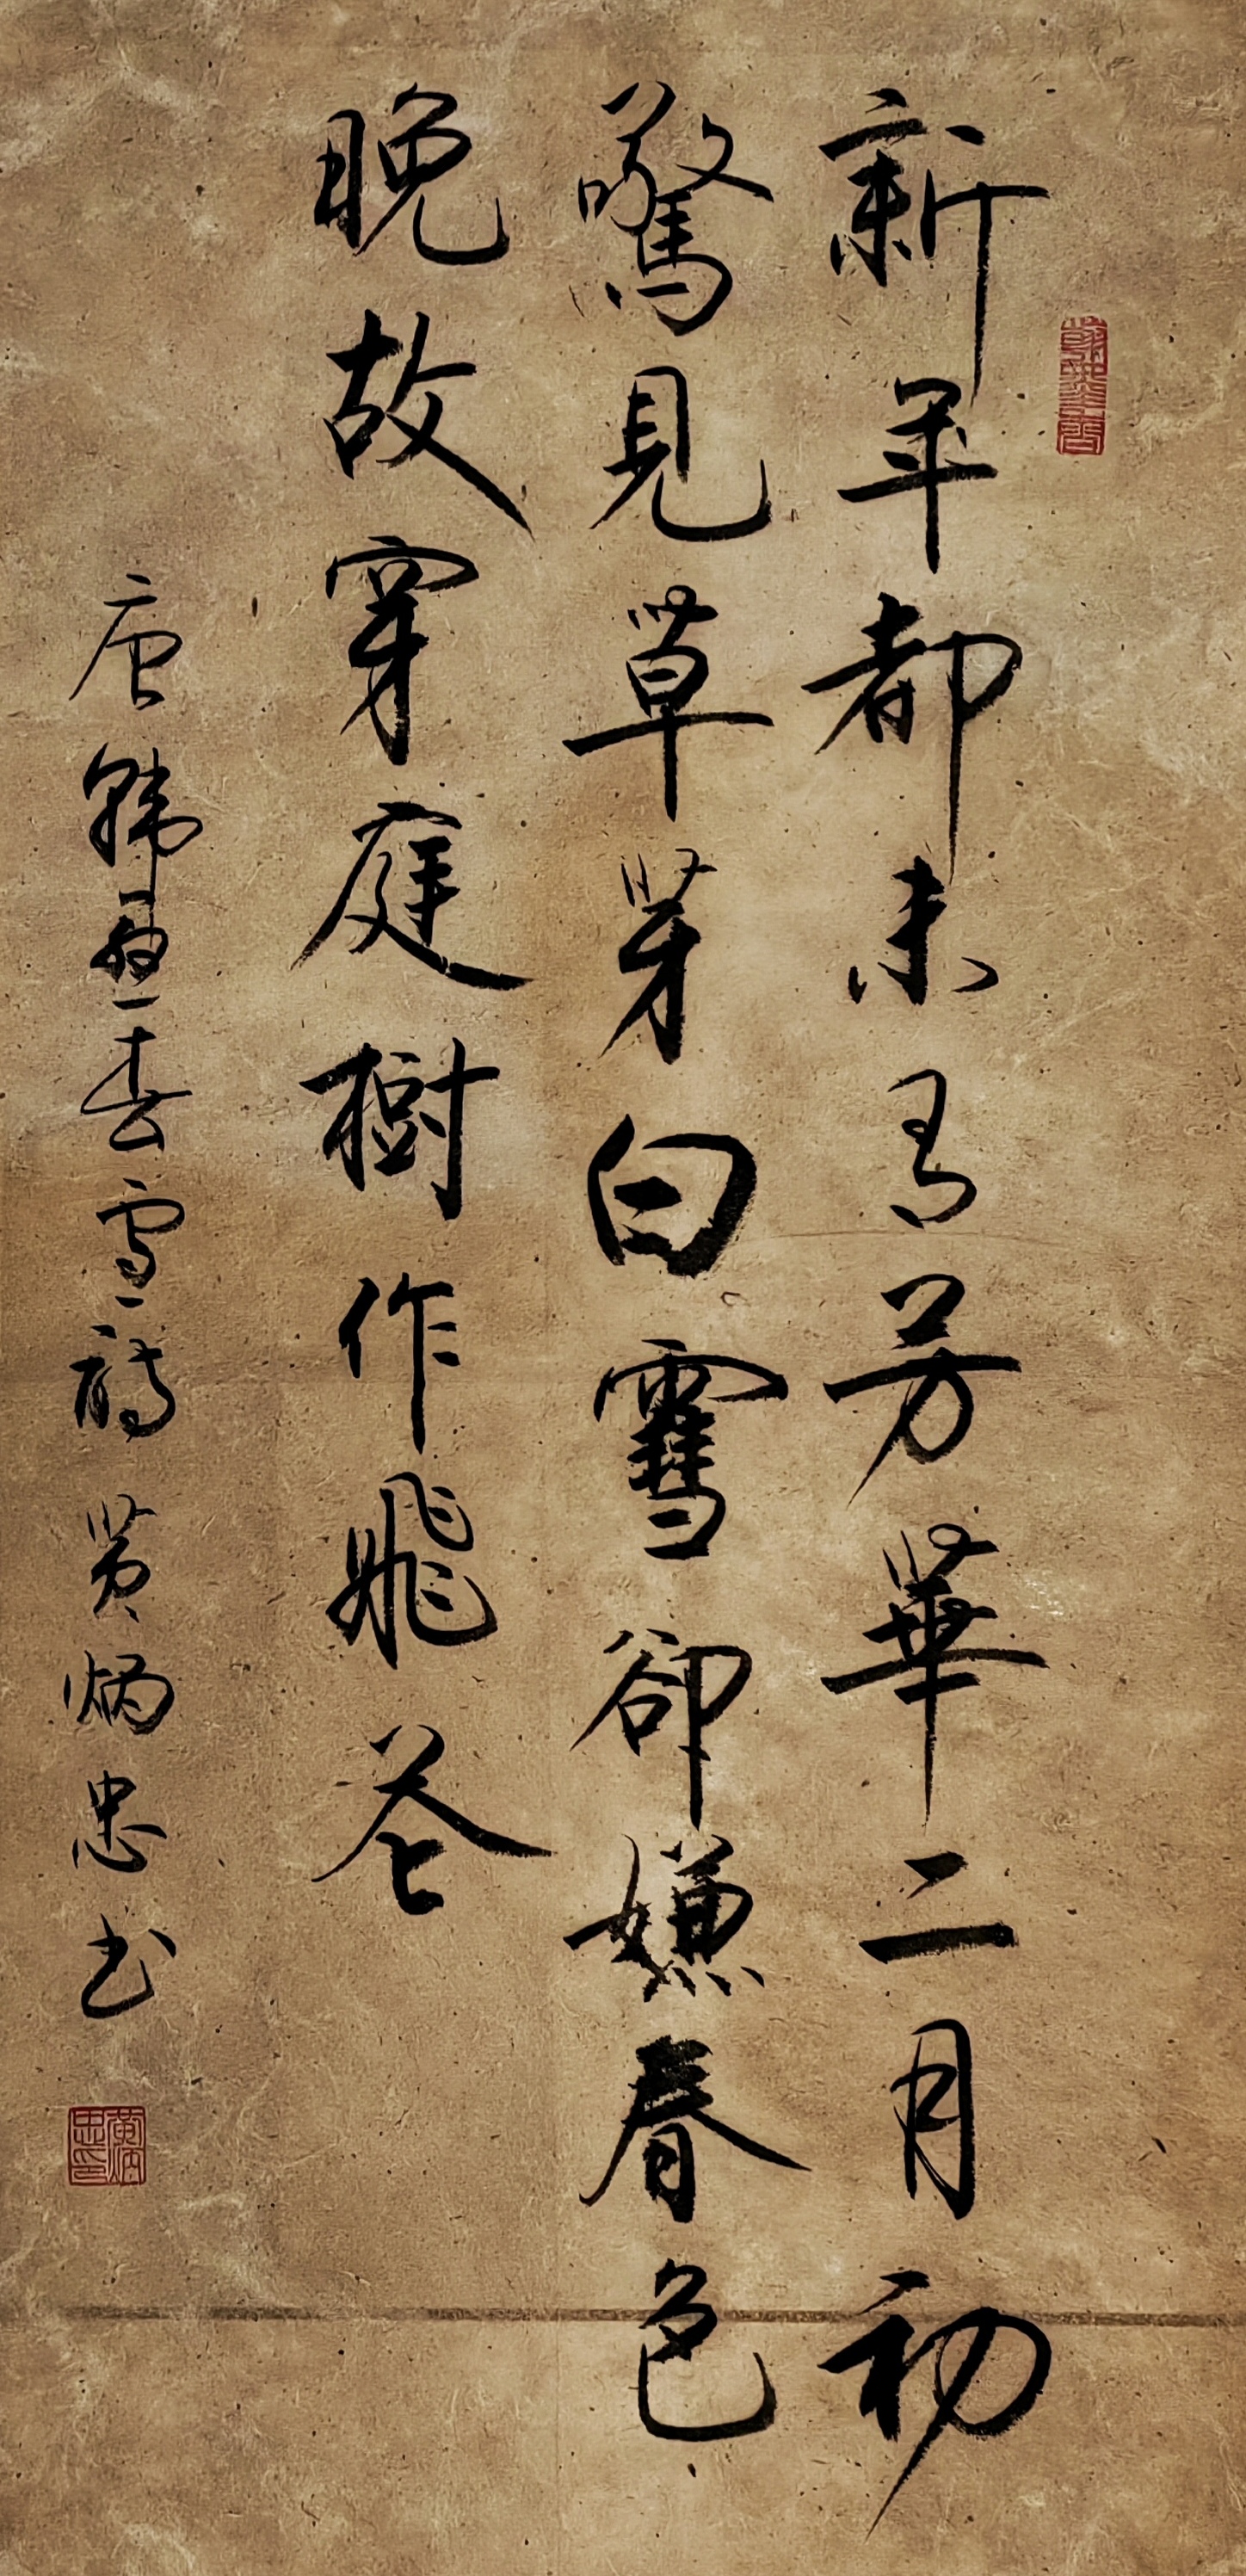 新年都未有芳華二月初
驚見草芽白雪卻嫌春色
晚故穿庭樹作飛花
唐韓愈春雪詩黄炳忠书
黄炳忠印